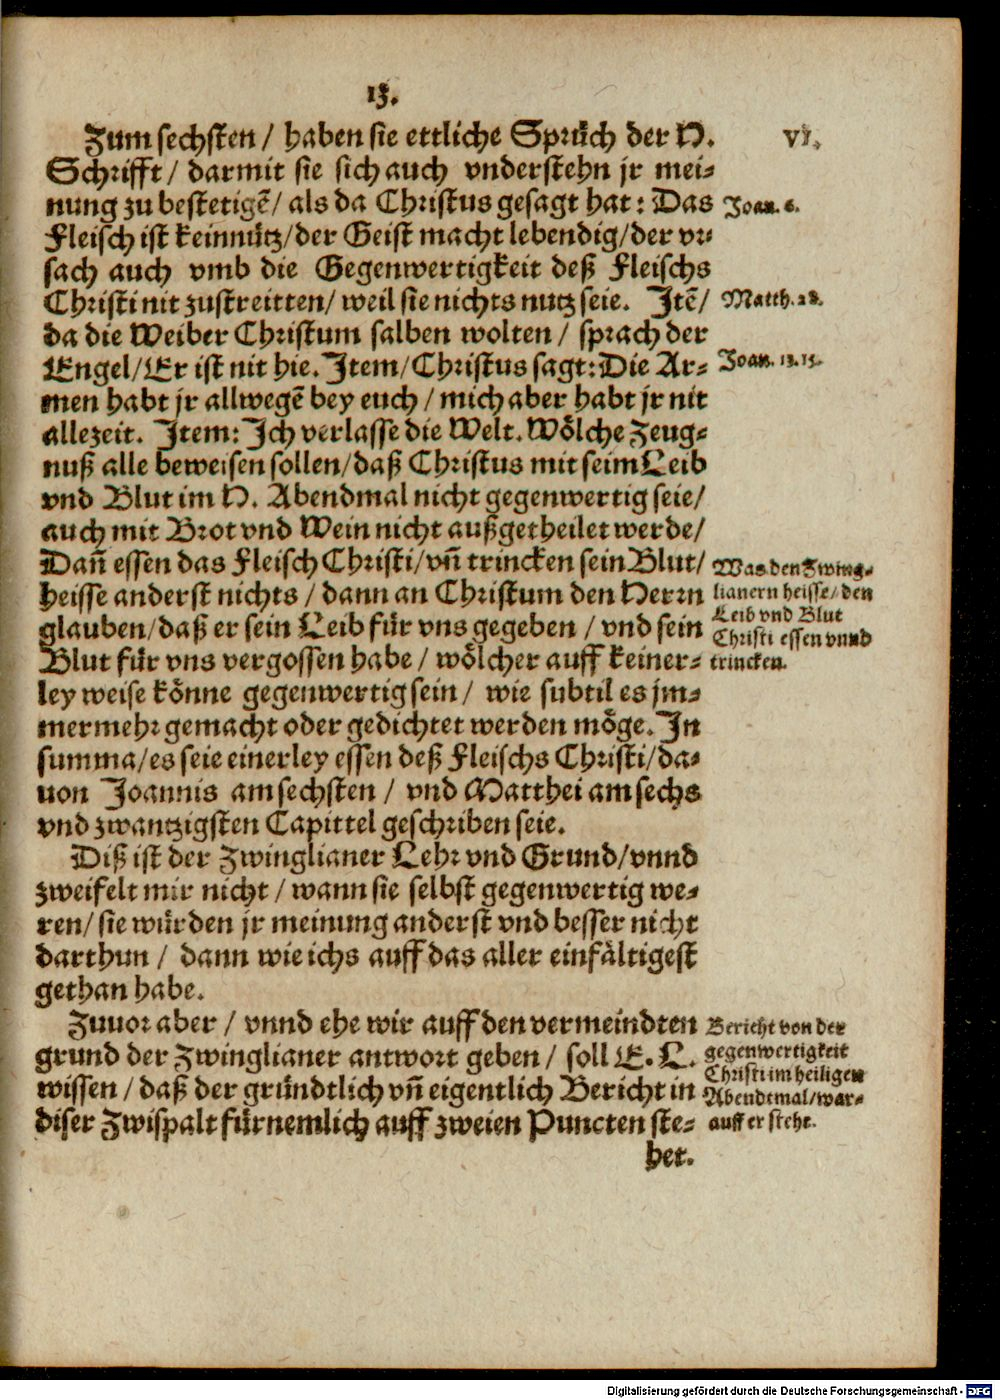 13.
Zum sechsten / haben sie ettliche Sprüch der H.
Schrifft / darmit sie sich auch vnderstehn jr mei-
nung zu bestetigẽ / als da Christus gesagt hat: Das
Fleisch ist kein nütz / der Geist macht lebendig / der vr-
sach auch vmb die Gegenwertigkeit deß Fleischs
Christi nit zustreitten / weil sie nichts nutz seie. Itẽ /
da die Weiber Christum salben wolten / sprach der
Engel / Er ist nit hie. Item / Christus sagt: Die Ar-
men habt jr allwegẽ bey euch / mich aber habt jr nit
allezeit. Item: Ich verlasse die Welt. Wölche Zeug-
nuß alle beweisen sollen / daß Christus mit seim Leib
vnd Blut im H. Abendmal nicht gegenwertig seie /
auch mit Brot vnd Wein nicht außgetheilet werde /
Dañ essen das Fleisch Christi / vñ trincken sein Blut /
heisse anderst nichts / dann an Christum den Herrn
glauben / daß er sein Leib für vns gegeben / vnd sein
Blut für vns vergossen habe / wölcher auff keiner-
ley weise könne gegenwertig sein / wie subtil es jm-
mermehr gemacht oder gedichtet werden möge. In
summa / es seie einerley essen deß Fleischs Christi / da-
uon Joannis am sechsten / vnd Matthei am sechs
vnd zwantzigsten Capittel geschriben seie.
Diß ist der Zwinglianer Lehr vnd Grund / vnnd
zweifelt mir nicht / wann sie selbst gegenwertig we-
ren / sie würden jr meinung anderst vnd besser nicht
darthun / dann wie ichs auff das aller einfältigest
gethan habe.
Zuuor aber / vnnd ehe wir auff den vermeindten
grund der Zwinglianer antwort geben / soll E. L.
wissen / daß der gründtlich vñ eigentlich Bericht in
diser Zwispalt fürnemlich auff zweien Puncten ste-
het.
VI.
Joan. 6.
Matth. 28.
Joan. 12. 15.
Was den Zwing-
lianern heisse / den
Leib vnd Blut
Christi essen vnnd
trincken.
Bericht von der
gegenwertigkeit
Christi im heiligen
Abendtmal / war-
auff er stehe.
Digitalisierung gefördert durch die Deutsche Forschungsgemeinschaft - DFG